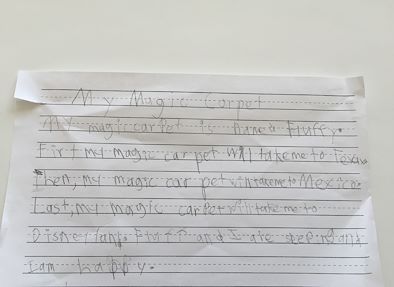 My Magic Carpet
My magic carpet is named Fluffy.
First my magic carpet will take me to Texas.
Then, my magic carpet will take me to Mexico.
Last, my magic carpet will take me to
Disneyland. Fluffy and I are sleeping and
I am happy.